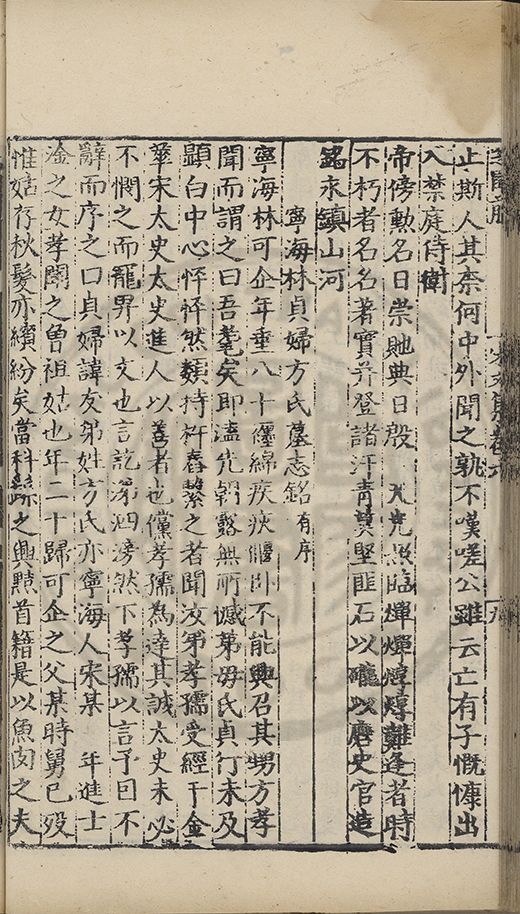 止斯人其柰何中外聞之孰不嘆嗟公雖云亡有子慨慷出
入禁庭侍衛
帝傍勲名日崇貤典日殷 天光照臨燀燀煌煌難逢者時
不朽者名名著實并登諸汗青莫堅匪石以礲以磨史官造
銘永鎮山河
寧海林貞婦方氏墓志銘有序
寧海林可企年垂八十纏綿疾疢偃卧不能興召其甥方孝
聞而謂之曰吾耄矣即溘先朝露無所憾第毋氏貞行未及
顯白中心怦怦然類持杵舂擊之者聞汝弟孝孺受經于金
華宋太史太史進人以善者也儻孝孺為達其誠太史未必
不憫之而寵畀以文也言訖涕泗滂然下孝孺以言予因不
辭而序之曰貞婦諱友弟姓方氏亦寧海人宋某 年進士
淦之女孝聞之曾祖姑也年二十歸可企之父某時舅已歿
惟姑存秋髪亦繽紛矣當科繇之興黥首籍是以魚肉之夫